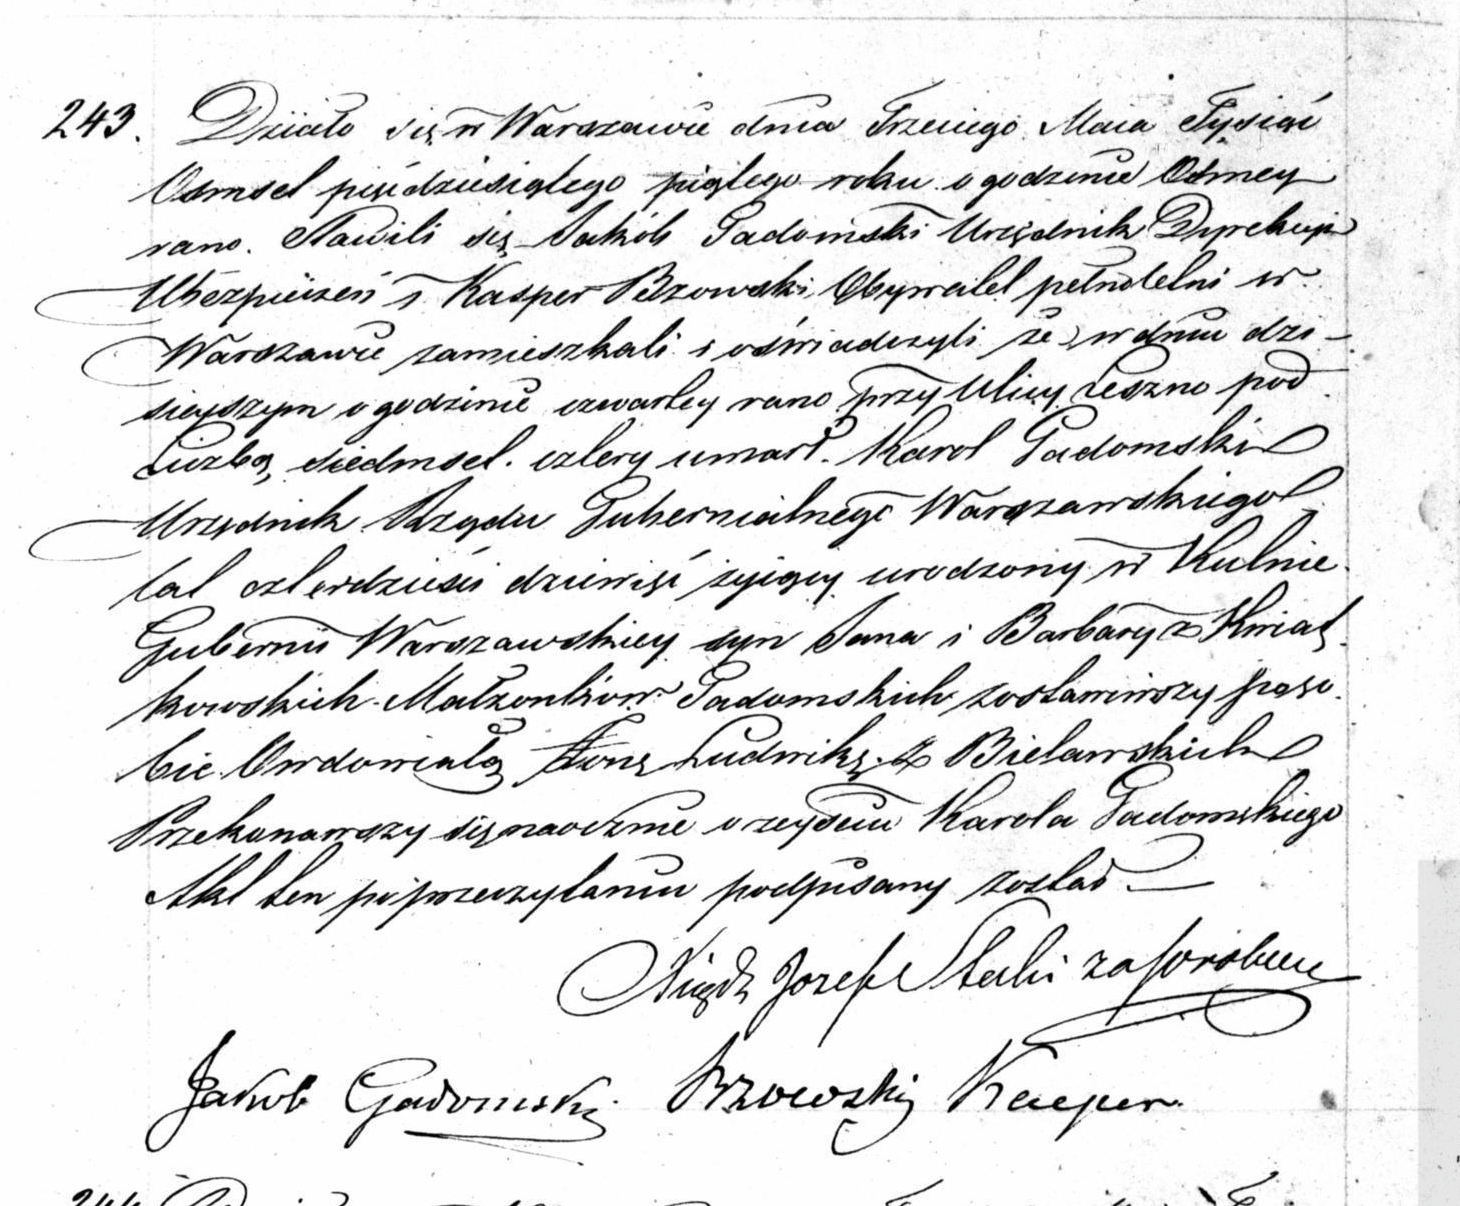 243. Działo się w Warszawie dnia Trzeciego Maia Tysiąc
Ośmset pięćdziesiątego piątego roku o godzinie Osmey
rano. Stawili się Jakób Gadomski Urzędnik Dyrekcyi
Ubezpieczeń i Kasper Bzowski, Obywatel pełnoletni w
Warszawie zamieszkali i oświadczyli że w dniu dzi-
sieyszym o godzinie czwartey rano przy Ulicy Leszno pod
Liczbą siedmset. cztery umarł. Karol Gadomski
Urzędnik Rządu Gubernialnego Warszawskiego
lat czterdzieści dziewięć żyiący urodzony w Kutnie
Gubernii Warszawskiey syn Jana i Barbary z Kwiat-
kowskich Małżonków Gadomskich zostawiwszy po so-
bie Owdowiałą Żonę Ludwikę z Bielawskich
Przekonawszy się naocznie o zeyściu Karola Gadomskiego
Akt ten po przeczytaniu podpisany został
Xiądz Jozef Stecki za
Jakób Gadomski Bzowski Kasper.
244